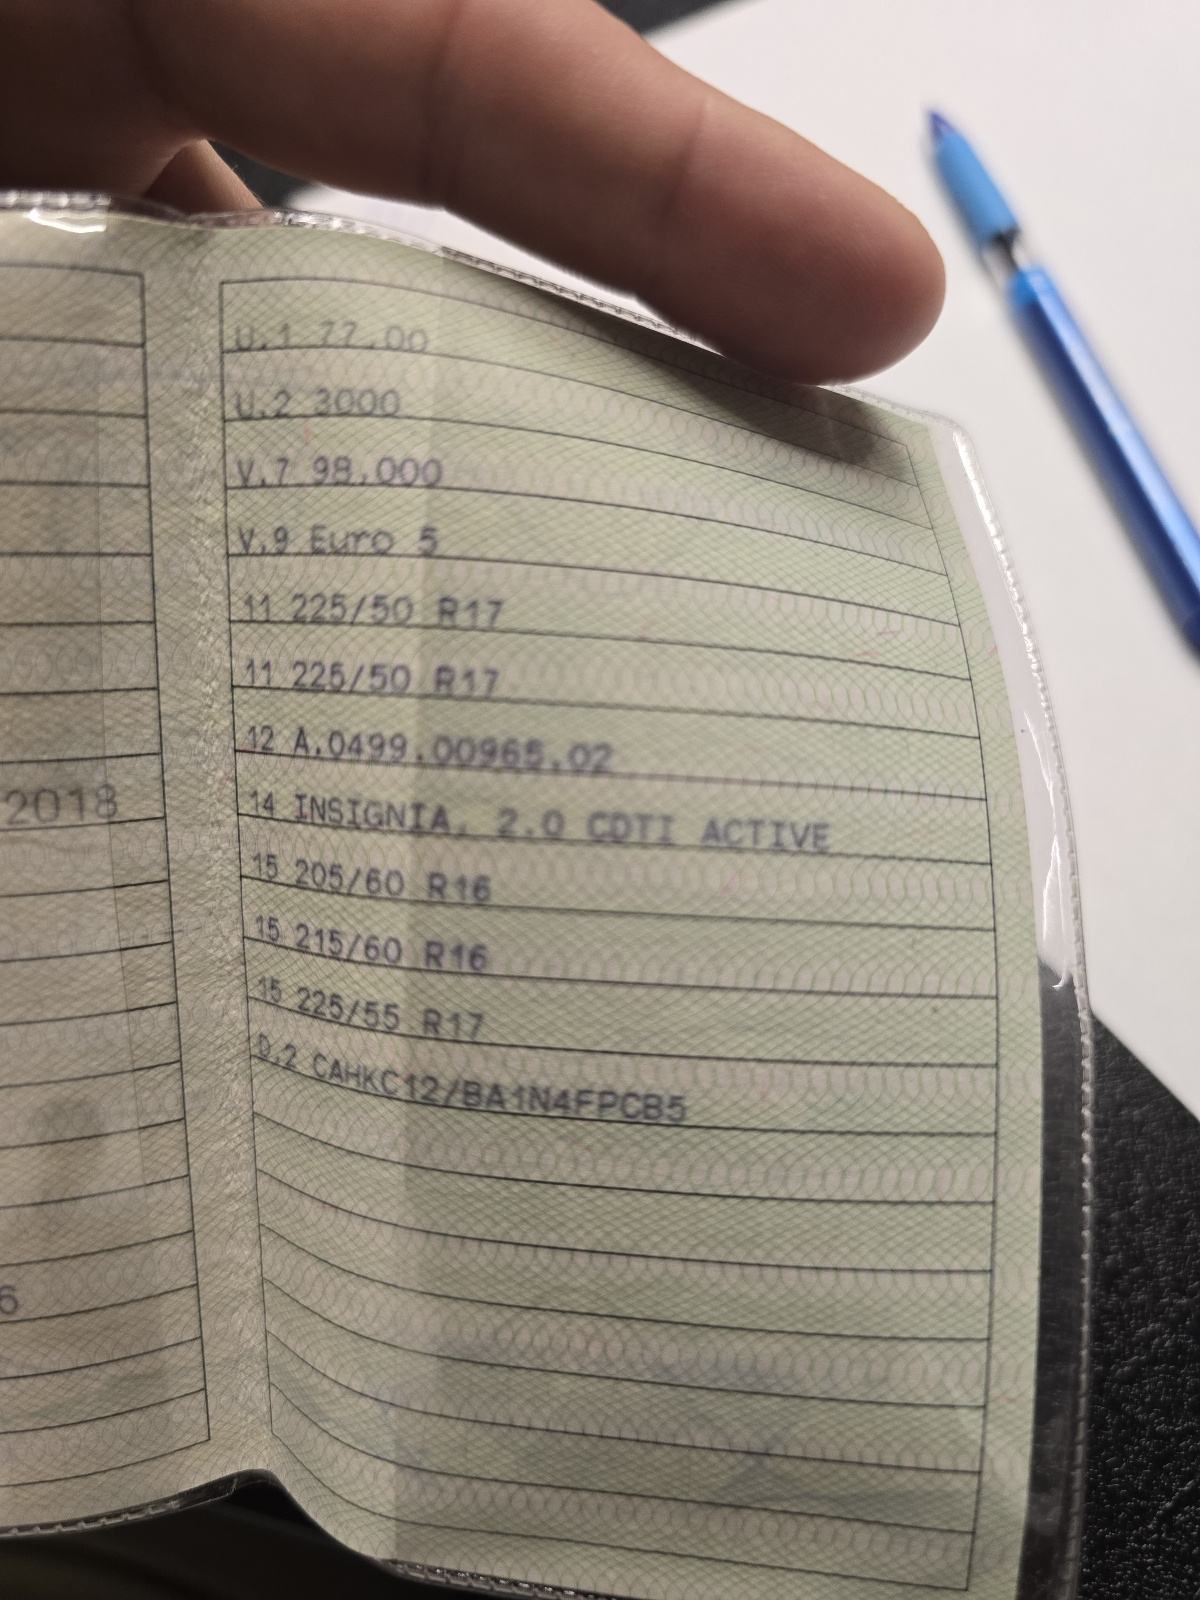 2018
6
U.1 77.00
U.2 3000
V.7 98.000
V.9 Euro 5
11 225/50 R17
11 225/50 R17
12 A.0499.00965.02
14 INSIGNIA, 2.0 CDTI ACTIVE
15 205/60 R16
15 215/60 R16
15 225/55 R17
D.2 CAHKC12/BA1N4FPCB5